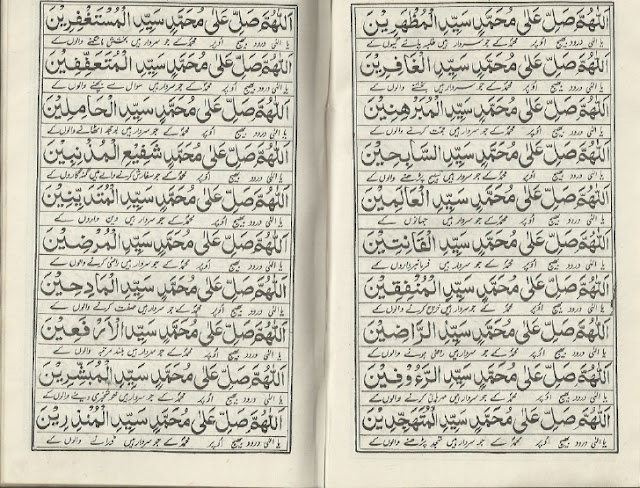 اَللّٰهُمَّ صَلِّ عَلٰى مُحَمَّدٍ سَيِّدِ الْمُظَهَّرِيْنَ
یا الٰہی درود بھیج اوپر محمدؐ کے جو سردار ہیں کے
اَللّٰهُمَّ صَلِّ عَلٰى مُحَمَّدٍ سَيِّدِ الْغَافِرِيْنَ
یا الٰہی درود بھیج اوپر محمدؐ کے جو سردار ہیں بخشنے والوں کے
اَللّٰهُمَّ صَلِّ عَلٰى مُحَمَّدٍ سَيِّدِ الْمُبَرْهِنِيْنَ
یا الٰہی درود بھیج اوپر محمدؐ کے جو سردار ہیں حجت کرنے والوں کے
اَللّٰهُمَّ صَلِّ عَلٰى مُحَمَّدٍ سَيِّدِ السَّابِحِيْنَ
یا الٰہی درود بھیج اوپر محمدؐ کے جو سردار ہیں تسبیح پڑھنے والوں کے
اَللّٰهُمَّ صَلِّ عَلٰى مُحَمَّدٍ سَيِّدِ الْعَالَمِيْنَ
یا الٰہی درود بھیج اوپر محمدؐ کے جو سردار ہیں جہانوں کے
اَللّٰهُمَّ صَلِّ عَلٰى مُحَمَّدٍ سَيِّدِ الْقَانِتِيْنَ
یا الٰہی درود بھیج اوپر محمدؐ کے جو سردار ہیں فرمانبرداروں کے
اَللّٰهُمَّ صَلِّ عَلٰى مُحَمَّدٍ سَيِّدِ الْمُنْفِقِيْنَ
یا الٰہی درود بھیج اوپر محمدؐ کے جو سردار ہیں خرچ کرنے والوں کے
اَللّٰهُمَّ صَلِّ عَلٰى مُحَمَّدٍ سَيِّدِ الرَّاضِيْنَ
یا الٰہی درود بھیج اوپر محمدؐ کے جو سردار ہیں راضی ہونے والوں کے
اَللّٰهُمَّ صَلِّ عَلٰى مُحَمَّدٍ سَيِّدِ الرَّءُوْفِيْنَ
یا الٰہی درود بھیج اوپر محمدؐ کے جو سردار ہیں مہربانی کرنے والوں کے
اَللّٰهُمَّ صَلِّ عَلٰى مُحَمَّدٍ سَيِّدِ الْمُتَهَجِّدِيْنَ
یا الٰہی درود بھیج اوپر محمدؐ کے جو سردار ہیں تہجد پڑھنے والوں کے
اَللّٰهُمَّ صَلِّ عَلٰى مُحَمَّدٍ سَيِّدِ الْمُسْتَغْفِرِيْنَ
یا الٰہی درود بھیج اوپر محمدؐ کے جو سردار ہیں بخشش مانگنے والوں کے
اَللّٰهُمَّ صَلِّ عَلٰى مُحَمَّدٍ سَيِّدِ الْمُتَعَفِّفِيْنَ
یا الٰہی درود بھیج اوپر محمدؐ کے جو سردار ہیں سوال سے بچنے والوں کے
اَللّٰهُمَّ صَلِّ عَلٰى مُحَمَّدٍ سَيِّدِ الْحَامِلِيْنَ
یا الٰہی درود بھیج اوپر محمدؐ کے جو سردار ہیں بوجھ اٹھانے والوں کے
اَللّٰهُمَّ صَلِّ عَلٰى مُحَمَّدٍ شَفِيْعِ الْمُذْنِبِيْنَ
یا الٰہی درود بھیج اوپر محمدؐ کے جو سفارش کرنے والے ہیں گنہگاروں کے
اَللّٰهُمَّ صَلِّ عَلٰى مُحَمَّدٍ سَيِّدِ الْمُتَدَيِّنِيْنَ
یا الٰہی درود بھیج اوپر محمدؐ کے جو سردار ہیں دین داروں کے
اَللّٰهُمَّ صَلِّ عَلٰى مُحَمَّدٍ سَيِّدِ الْمُرْضِيْنَ
یا الٰہی درود بھیج اوپر محمدؐ کے جو سردار ہیں راضی کرنے والوں کے
اَللّٰهُمَّ صَلِّ عَلٰى مُحَمَّدٍ سَيِّدِ الْمَادِحِيْنَ
یا الٰہی درود بھیج اوپر محمدؐ کے جو سردار ہیں صفت کرنے والوں کے
اَللّٰهُمَّ صَلِّ عَلٰى مُحَمَّدٍ سَيِّدِ الْاَرْفَعِيْنَ
یا الٰہی درود بھیج اوپر محمدؐ کے جو سردار ہیں بلند مرتبہ والوں کے
اَللّٰهُمَّ صَلِّ عَلٰى مُحَمَّدٍ سَيِّدِ الْمُبَشِّرِيْنَ
یا الٰہی درود بھیج اوپر محمدؐ کے جو سردار ہیں خوشخبری دینے والوں کے
اَللّٰهُمَّ صَلِّ عَلٰى مُحَمَّدٍ سَيِّدِ الْمُنْذِرِيْنَ
یا الٰہی درود بھیج اوپر محمدؐ کے جو سردار ہیں ڈرانے والوں کے